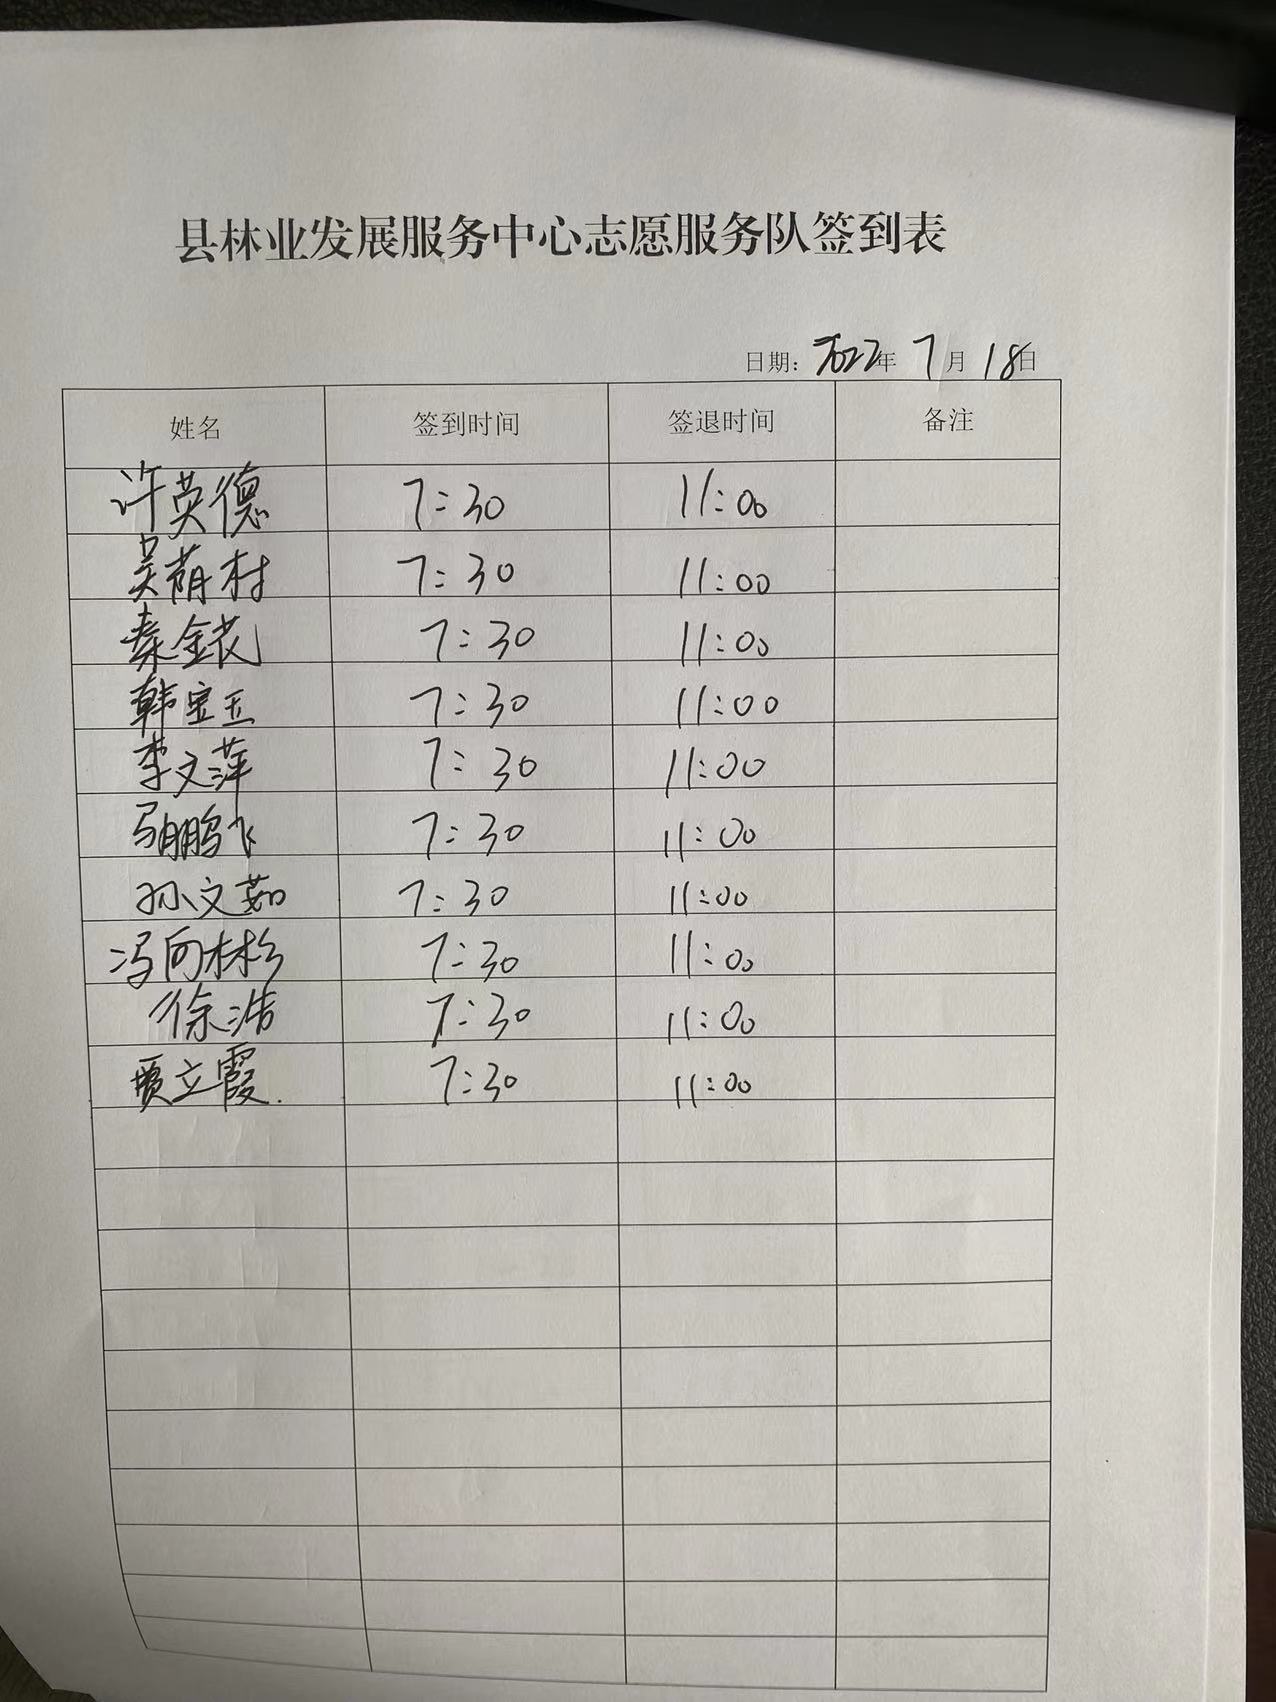 县林业发展服务中心志愿服务队签到表
日期：2022年 7月 18日
姓名 签到时间 签退时间 备注
许英德 7:30 11:00
吴荫村 7:30 11:00
秦金花 7:30 11:00
韩宝玉 7:30 11:00
李文萍 7:30 11:00
马鹏飞 7:30 11:00
孙文茹 7:30 11:00
冯向彬 7:30 11:00
徐浩 7:30 11:00
贾立霞 7:30 11:00